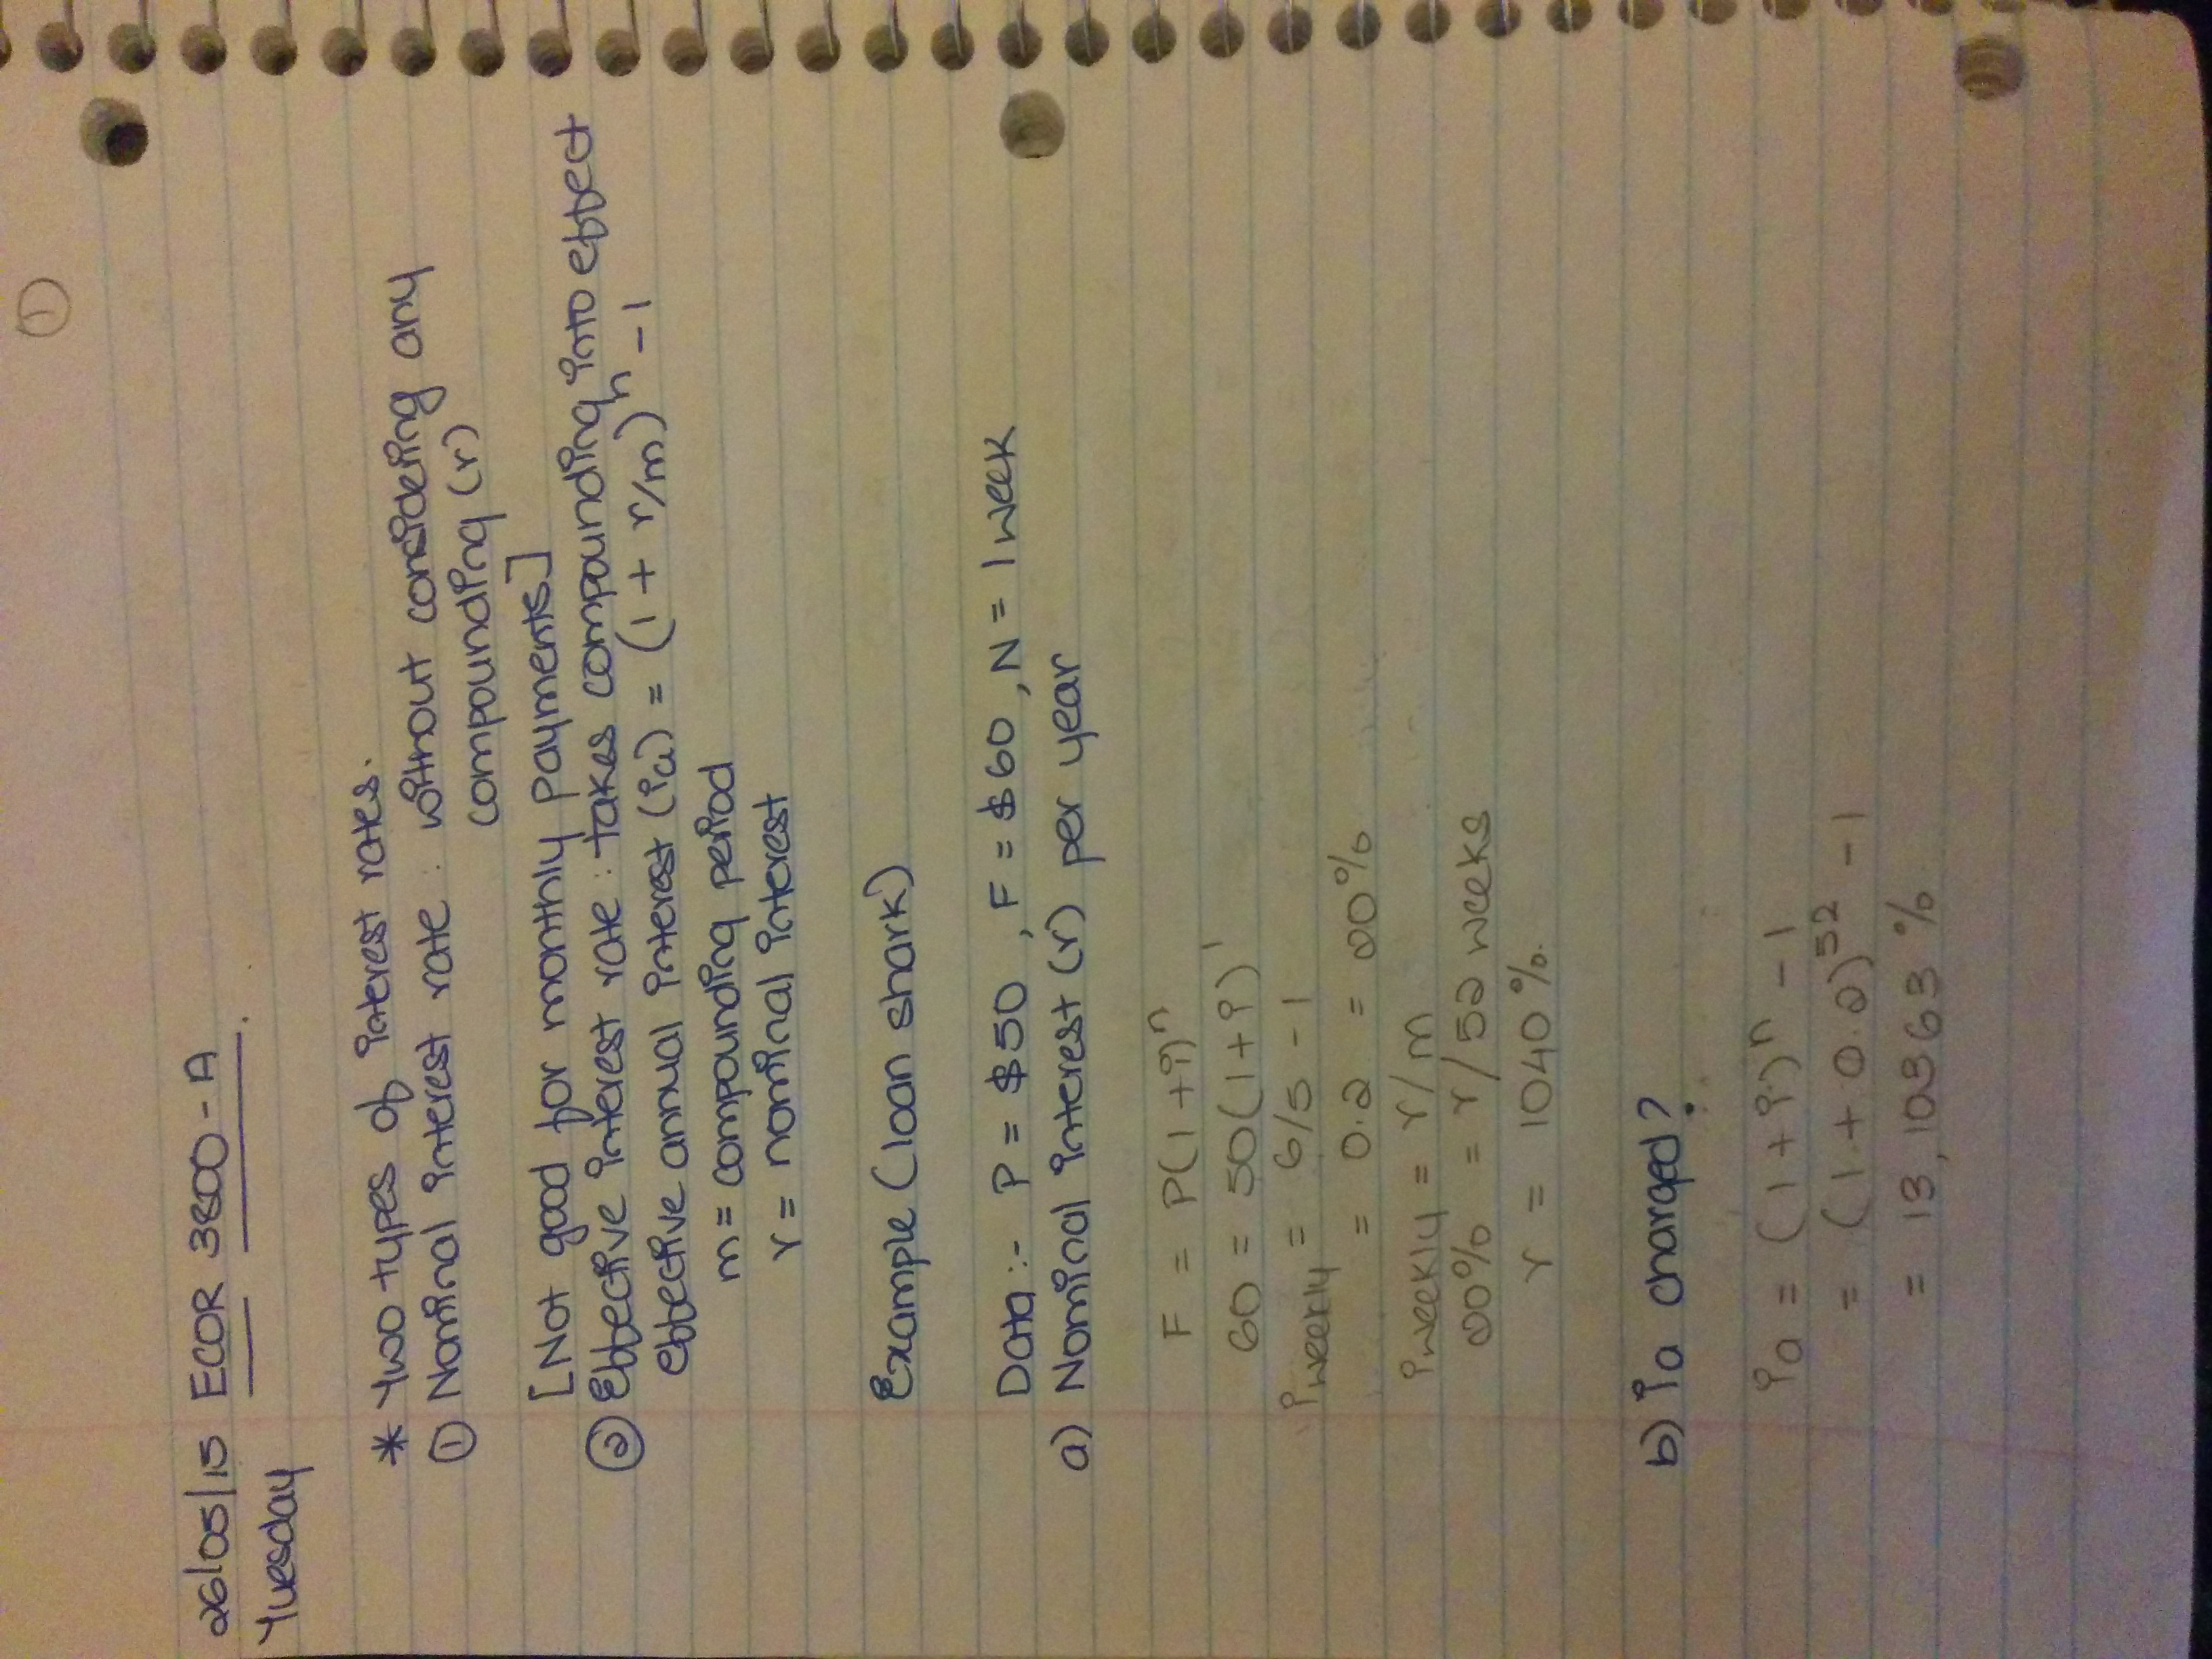 ①
26/05/15 ECOR 3800-A
Tuesday
* Two types of interest rates.
① Nominal interest rate : without considering any
compounding (r)
[Not good for monthly payments]
② Effective interest rate : takes compounding into effect
effective annual interest (ia) = (1 + r/m)ⁿ - 1
m = compounding period
r = nominal interest
Example (loan shark)
Data :- P = $50 , F = $60 , N = 1 week
a) Nominal interest (r) per year
F = P(1+i)ⁿ
60 = 50(1+i)¹
iweekly = 6/5 - 1
= 0.2 = 20%
iweekly = r/m
20% = r/52 weeks
r = 1040%.
b) ia charged?
ia = (1+i)ⁿ - 1
= (1+0.2)⁵² - 1
= 13,10363 %.